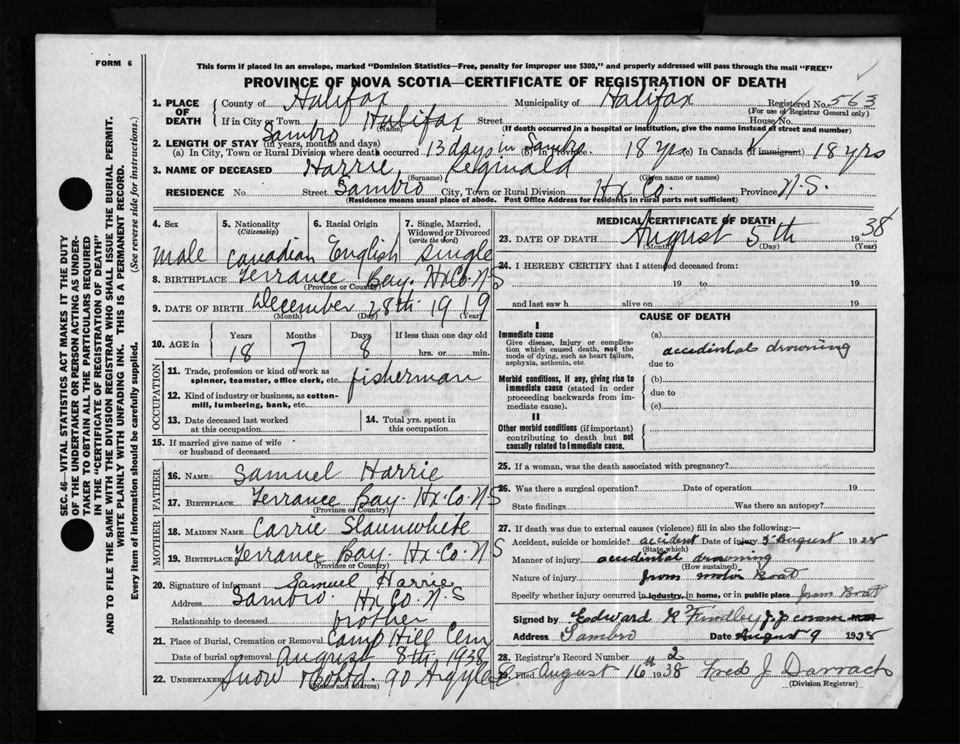 FORM 6
This form if placed in an envelope, marked "Dominion Statistics—Free, penalty for improper use $300," and properly addressed will pass through the mail "FREE"
PROVINCE OF NOVA SCOTIA—CERTIFICATE OF REGISTRATION OF DEATH
1. PLACE OF DEATH County of Halifax Municipality of Halifax Registered No. 563
(For use of Registrar General only)
If in City or Town Halifax Street House No.
(Name) (If death occurred in a hospital or institution, give the name instead of street and number)
Sambro
2. LENGTH OF STAY (in years, months and days)
(a) In City, Town or Rural Division where death occurred 13 days in Sambro (b) In Province 18 yrs (c) In Canada (if immigrant) 18 yrs
3. NAME OF DECEASED Harrie, Reginald
(Surname) (Given name or names)
RESIDENCE No. Street Sambro City, Town or Rural Division Hx Co. Province N.S.
(Residence means usual place of abode. Post Office Address for residents in rural parts not sufficient)
4. Sex 5. Nationality (Citizenship) 6. Racial Origin 7. Single, Married, Widowed or Divorced (write the word)
male Canadian English single
8. BIRTHPLACE Terrance Bay. Hx Co. N S
(Province or Country)
9. DATE OF BIRTH December 28th 1919
(Month) (Day) (Year)
10. AGE in Years Months Days If less than one day old
18 7 8 hrs. or min.
OCCUPATION
11. Trade, profession or kind of work as spinner, teamster, office clerk, etc. fisherman
12. Kind of industry or business, as cotton-mill, lumbering, bank, etc.
13. Date deceased last worked at this occupation
14. Total yrs. spent in this occupation
15. If married give name of wife or husband of deceased
FATHER
16. NAME Samuel Harrie
17. BIRTHPLACE Terrance Bay. Hx. Co. N S
(Province or Country)
MOTHER
18. MAIDEN NAME Carrie Slaunwhite
19. BIRTHPLACE Terrance Bay. Hx. Co. N S
(Province or Country)
20. Signature of informant Samuel Harrie
Address Sambro. Hx Co. N. S
Relationship to deceased brother
21. Place of Burial, Cremation or Removal Camp Hill Cem
Date of burial or removal August 8th 1938
22. UNDERTAKER Snow 90 Argyle
(Name and address)
MEDICAL CERTIFICATE OF DEATH
23. DATE OF DEATH August 5th 1938
(Month) (Day) (Year)
24. I HEREBY CERTIFY that I attended deceased from:
19 to 19
and last saw h alive on 19
CAUSE OF DEATH
I
Immediate cause
Give disease, injury or complication which caused death, not the mode of dying, such as heart failure, asphyxia, asthenia, etc.
(a) accidintal drowning
due to
Morbid conditions, if any, giving rise to immediate cause (stated in order proceeding backwards from immediate cause).
(b)
due to
(c)
II
Other morbid conditions (if important) contributing to death but not causally related to immediate cause.
25. If a woman, was the death associated with pregnancy?
26. Was there a surgical operation? Date of operation 19
State findings Was there an autopsy?
27. If death was due to external causes (violence) fill in also the following:—
Accident, suicide or homicide? accident Date of injury 5 August 1938
(State which)
Manner of injury accidintal drowning
(How sustained)
Nature of injury from motor Boat
Specify whether injury occurred in industry, in home, or in public place from Boat
Signed by Edward K Findley J.P.
Address Sambro Date August 9 1938
28. Registrar's Record Number 2
29. Filed August 16th 1938 Fred J Darrach
(Division Registrar)
SEC. 46—VITAL STATISTICS ACT MAKES IT THE DUTY
OF THE UNDERTAKER OR PERSON ACTING AS UNDER-
TAKER TO OBTAIN ALL THE PARTICULARS REQUIRED
IN THE "CERTIFICATE OF REGISTRATION OF DEATH"
AND TO FILE THE SAME WITH THE DIVISION REGISTRAR WHO SHALL ISSUE THE BURIAL PERMIT.
WRITE PLAINLY WITH UNFADING INK. THIS IS A PERMANENT RECORD.
Every item of information should be carefully supplied. (See reverse side for instructions.)